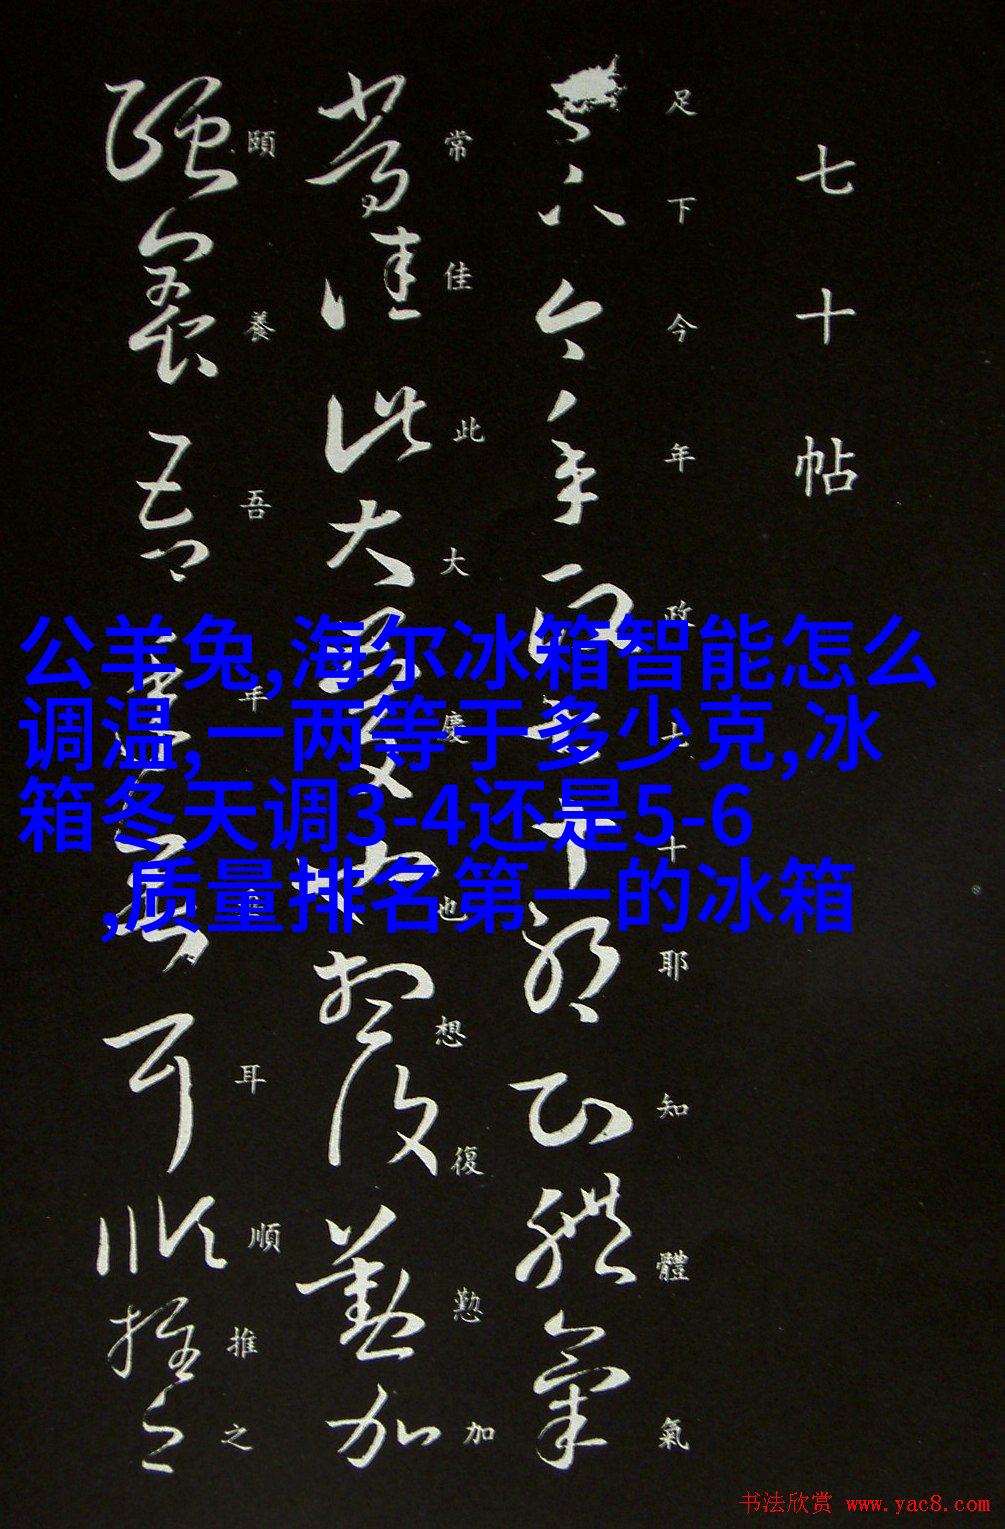 七十帖
足下今年政七十耶知體氣
常佳此大慶也想復懃加
頤養吾年耳順推之
公羊兔,海尔冰箱智能怎么
调温,一两等于多少克,冰
箱冬天调3-4还是5-6
,质量排名第一的冰箱
书法欣赏 www.yac8.com